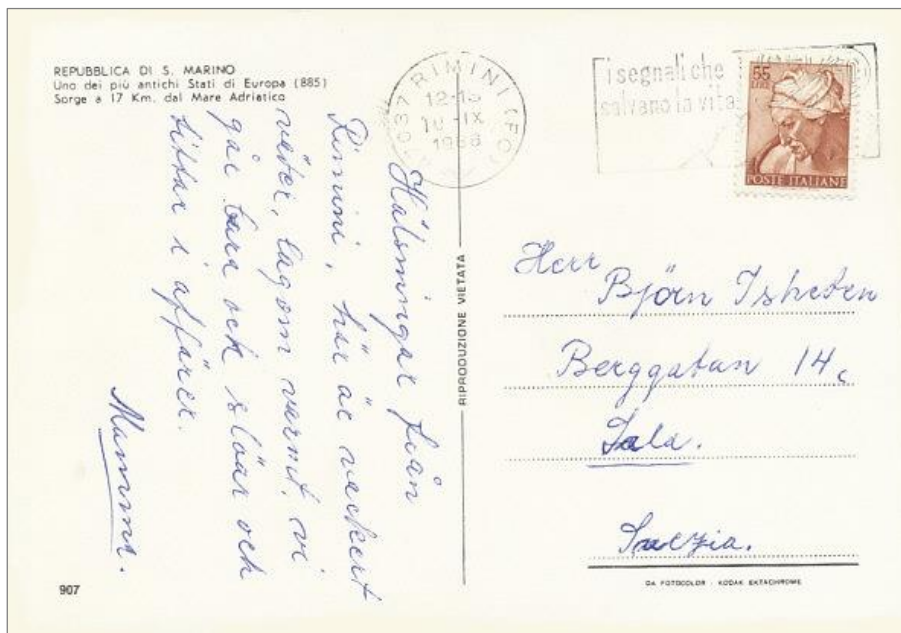 REPUBBLICA DI S. MARINO
Uno dei più antichi Stati di Europa (885)
Sorge a 17 Km. dal Mare Adriatico
RIMINI (FO)
12-13
IX
i segnali che
salvano la vita
55
LIRE
POSTE ITALIANE
Hälsningar från
Rimini, här är vackert
väder, lagom varmt. vi
går bara och slöar och
tittar i affärer.
Mamma.
RIPRODUZIONE VIETATA
Herr
Björn
Berggatan 14c
Sala.
Svezia.
907
DA FOTOCOLOR - KODAK EKTACHROME